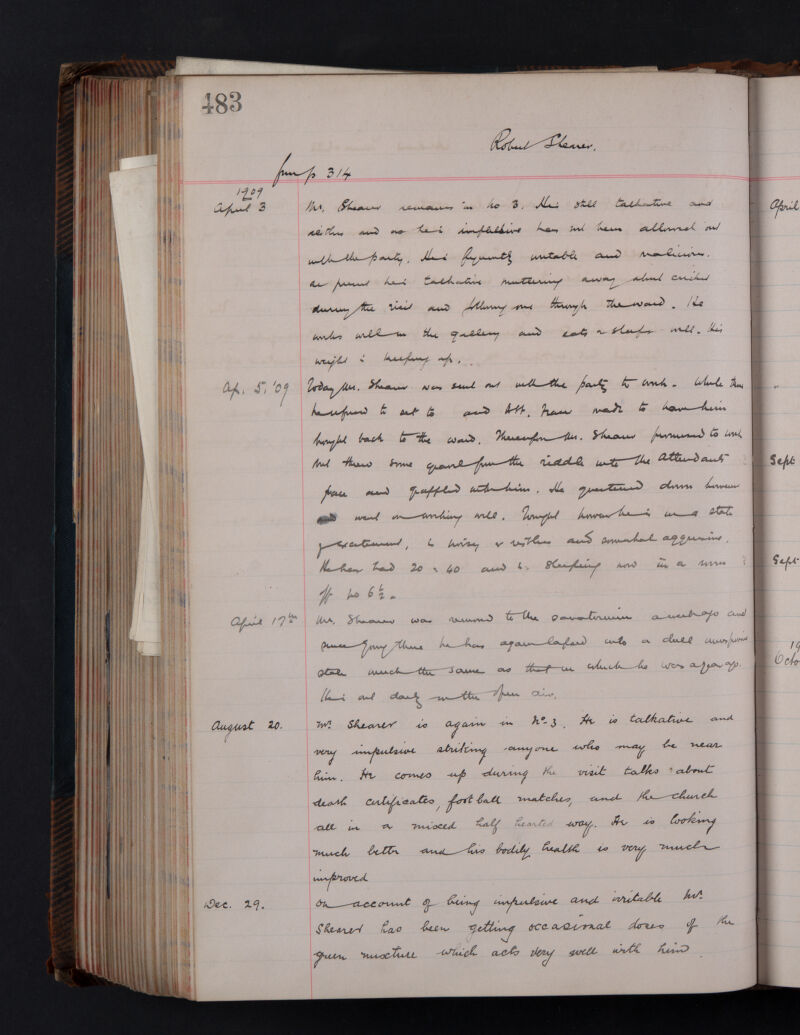 483
Robert Shearer.
from p 314
1909
April 3
Mr. Shearer remains in No 3. He is still talkative and
restless and as he is impulsive has not been allowed out
with the party. He is frequently irritable and malicious.
At present he is talkative muttering away about cricket
during the visit and following one through the ward. He
works well in the gallery and eats & sleeps well. His
weight is keeping up.
Ap. 5. '09
Today Mr. Shearer was sent out with the party to work. While there
he refused to act to and Att. Fraser made to have him
brought back to the ward. Thereupon Mr. Shearer promised to work
but threw some gravel from the riddle into the Attendant's
face and grappled with him. He quietened down however
and went on working well. Tonight however he is in a state
of excitement, is noisy & restless and somewhat aggressive.
He has had and is sleeping now in a room
off No 6½.
April 17th
Mr. Shearer was removed to the sanatorium a week ago and
since going there he has again lapsed into a dull
state much the same as that in which he was a year ago.
He is out daily in the open air.
August 20.
Mr. Shearer is again in No. 3. He is talkative and
very impulsive striking anyone who may be near
him. He comes up during the visit talks about
death certificates, football matches, and the church
all in a mixed half hearted way. He is looking
much better and his bodily health is very much
improved
Dec. 29.
On account of being impulsive and irritable Mr.
Shearer has been getting occasional doses of the
green mixture which acts very well with him.
April
Sept
Sept
19
Octo